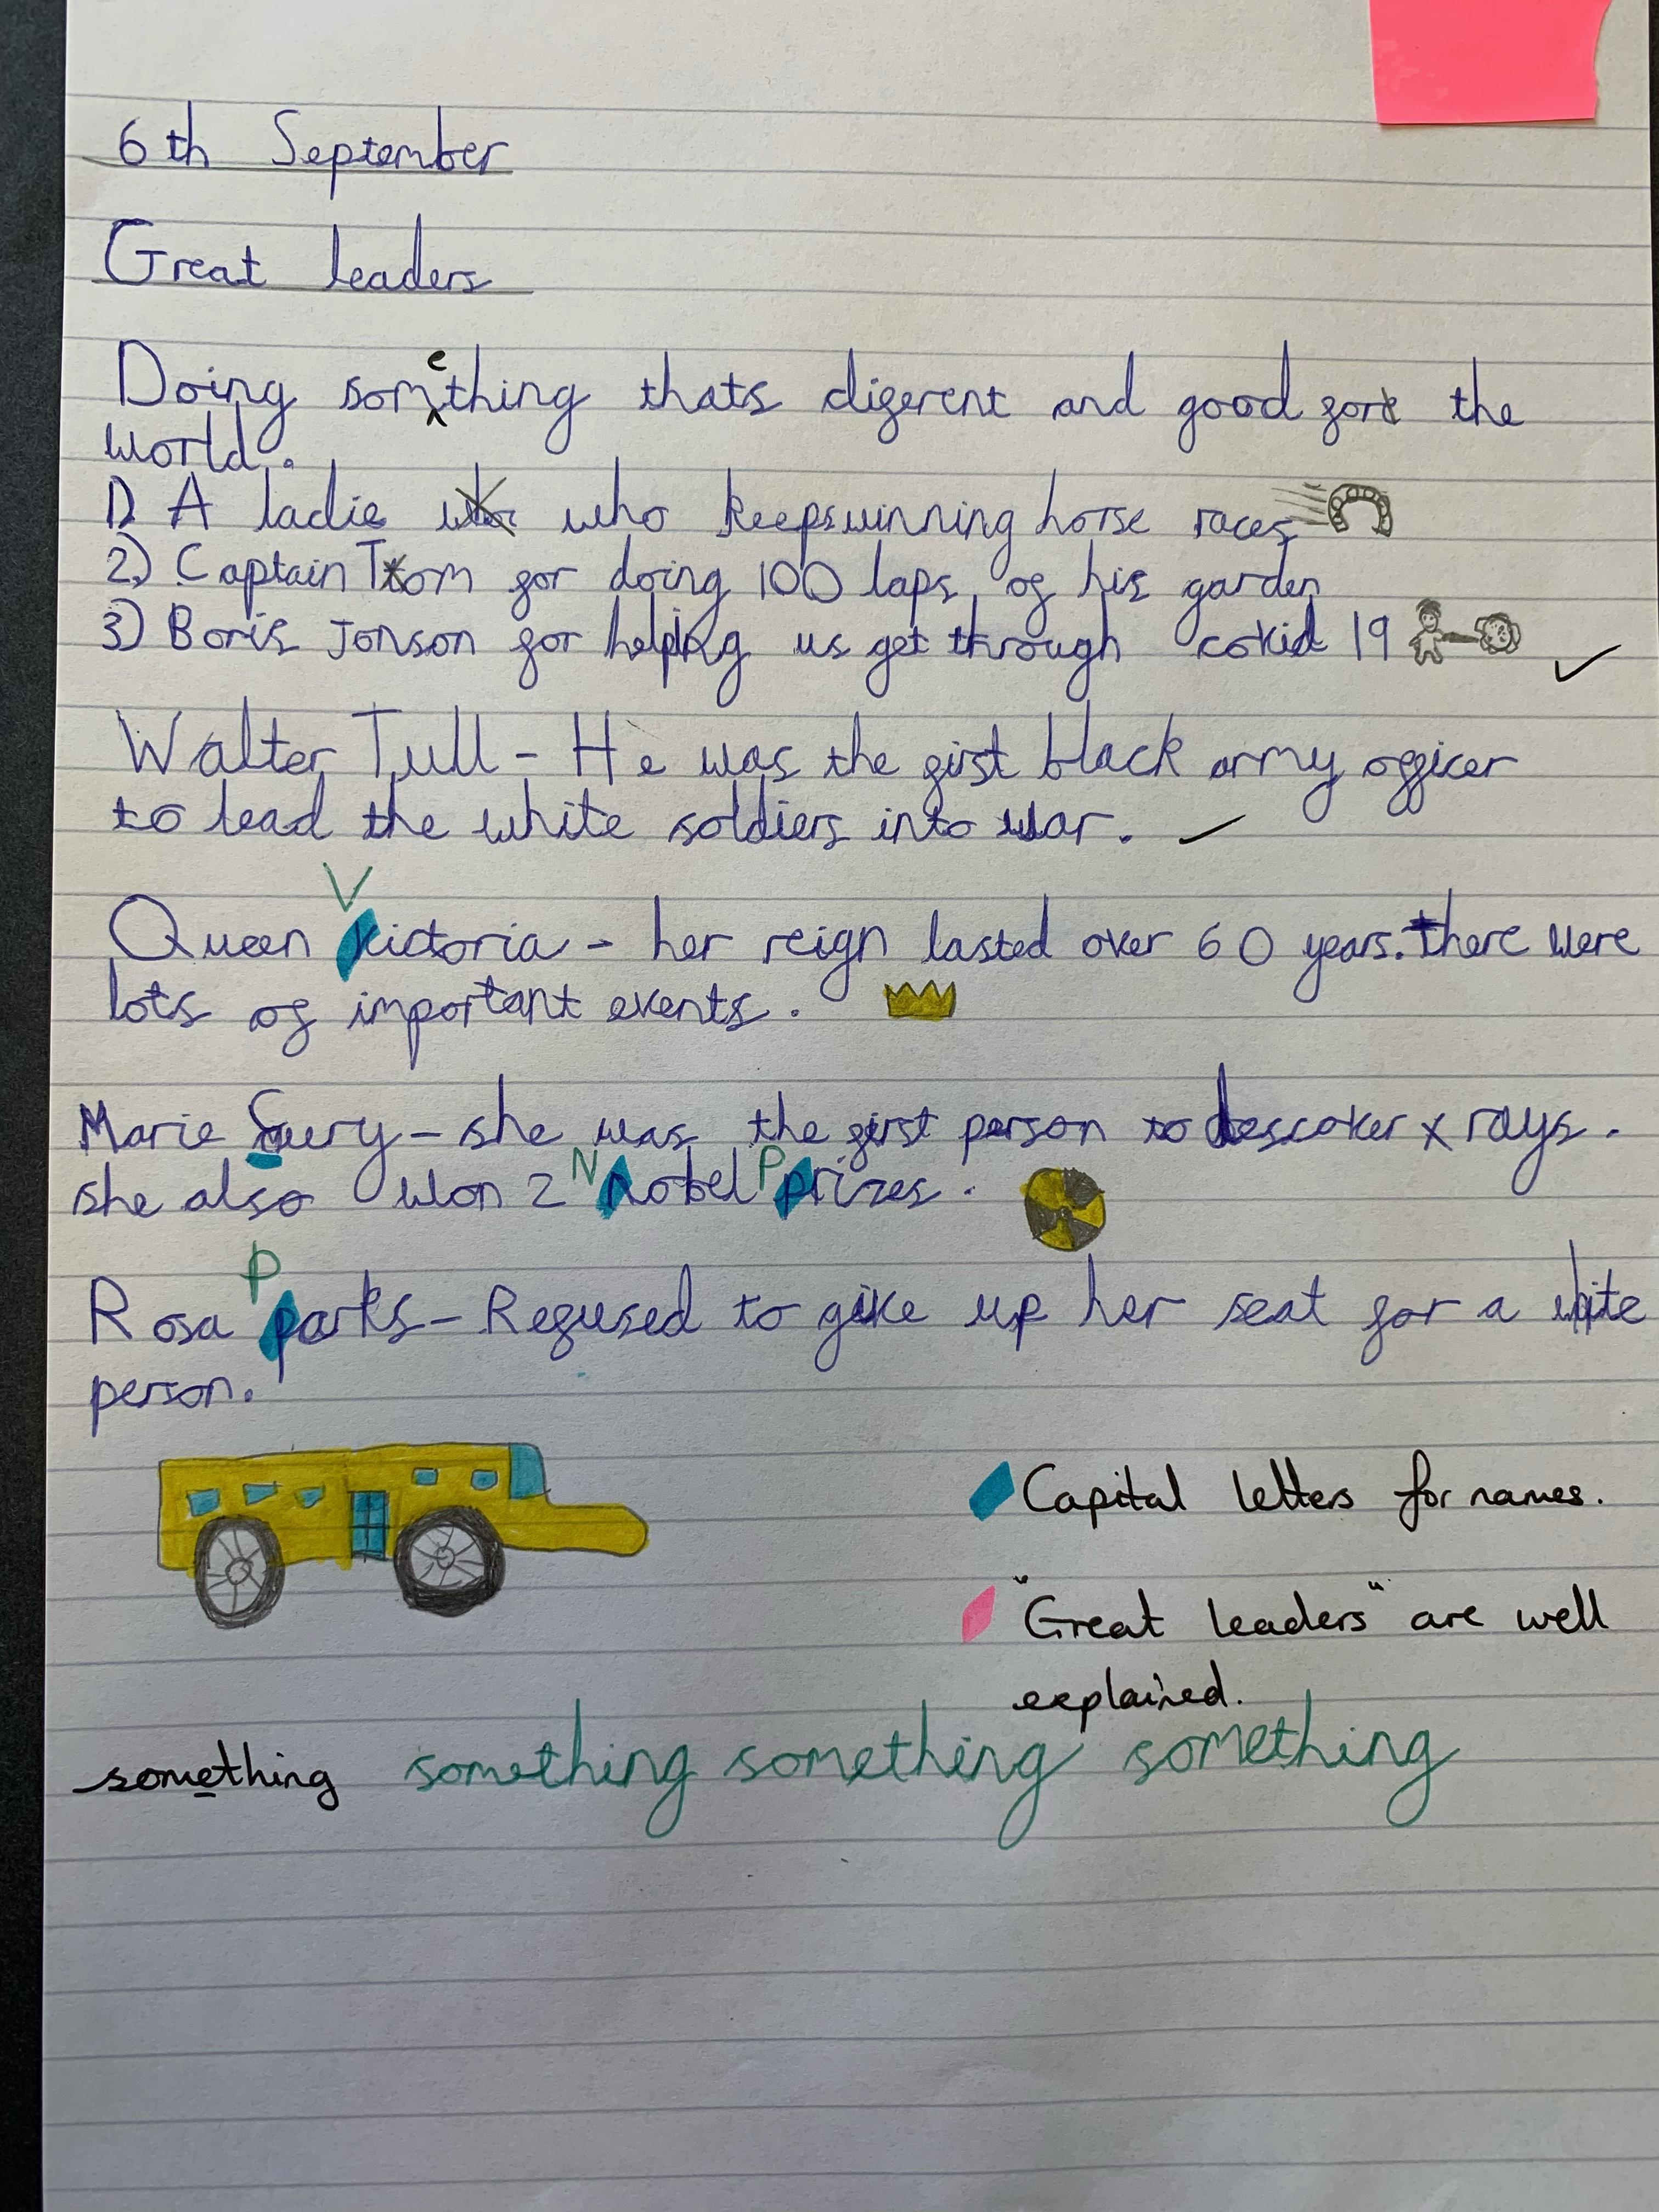 6th September
Great leaders
Doing something thats diferent and good for the
world.
1) A ladie who keeps winning horse races
2) Captain Tom for doing 100 laps of his garden
3) Boris Jonson for helping us get through covid 19
Walter Tull - He was the first black army officer
to lead the white soldiers into war.
Queen Victoria - her reign lasted over 60 years. There were
lots of important events.
Marie Cury - she was the first person to descover x rays.
she also won 2 Nobel Prizes.
Rosa Parks - Refused to give up her seat for a white
person.
Capital letters for names.
"Great leaders" are well
explained.
something something something something